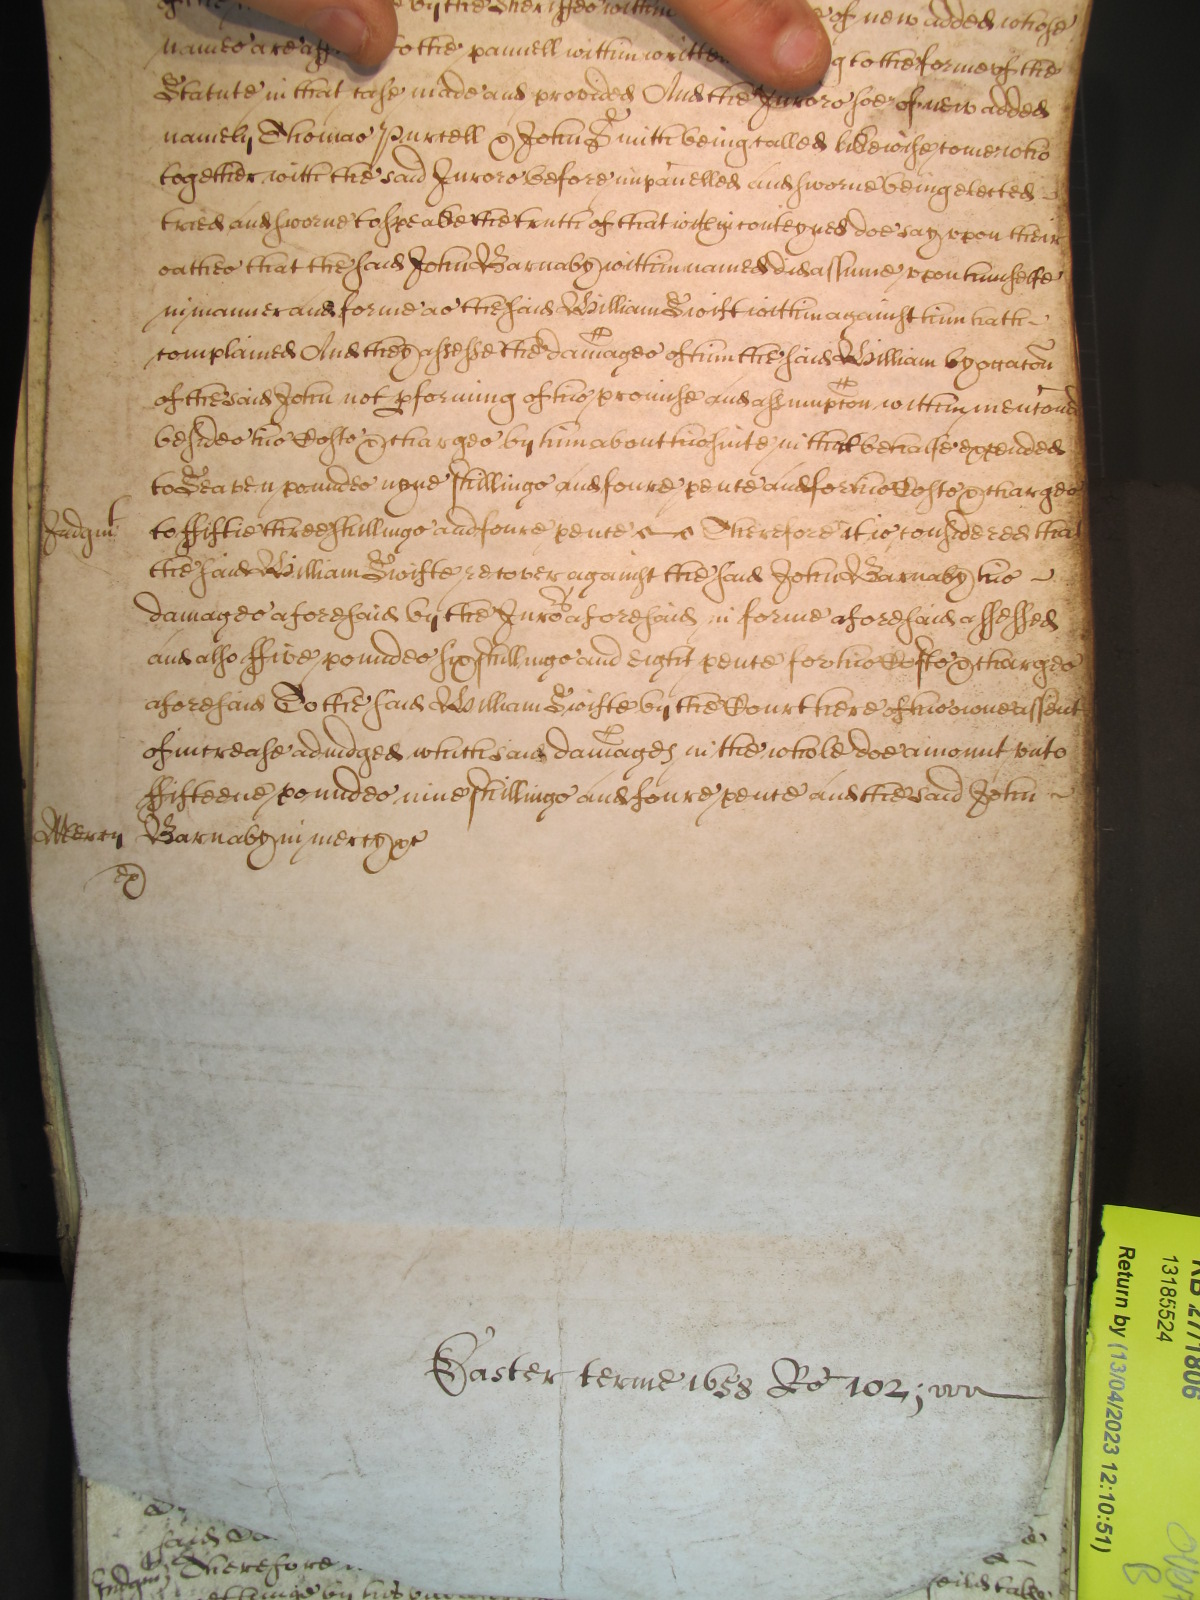 by the Sheriffes within of new added whose
names are to the pannell within written to the forme of the
Statute in that case made and provided And the Jurors soe of new added
namely Thomas Purcell & John Smith being called likewise come who
together with the said Jurors before impanelled and sworne being elected
tried and sworne to speake the truth of that within conteyned doe say upon their
oathes that the said John Barnaby within named did assume upon himselfe
in manner and forme as the said William Swift within against him hath
complained And they assesse the damages of him the said William by occacon
of the said John not pforming of his promise and assumpton within menconed
besides his Costs & charges by him about his suite in that behalfe expended
to Seaven poundes nyne shillings and foure pence and for his Costs & charges
Judgmt
to ffiftie three shillings and foure pence Therefore it is considered that
the said William Swifte recover against the said John Barnaby his
damages aforesaid by the Jurors aforesaid in forme aforesaid assessed
and also ffive poundes six shillings and eight pence for his Costs & charges
aforesaid To the said William Swifte by the Court here of his owne assent
of increase adiudged which said damages in the whole doe amount unto
ffifteene poundes nine shillings and foure pence and the said John
Mercy
Barnaby in mercy &c
Easter terme 1658 Ro 102;
said
Therefore
KB 27/1806
13185524
Return by (13/04/2023 12:10:51)